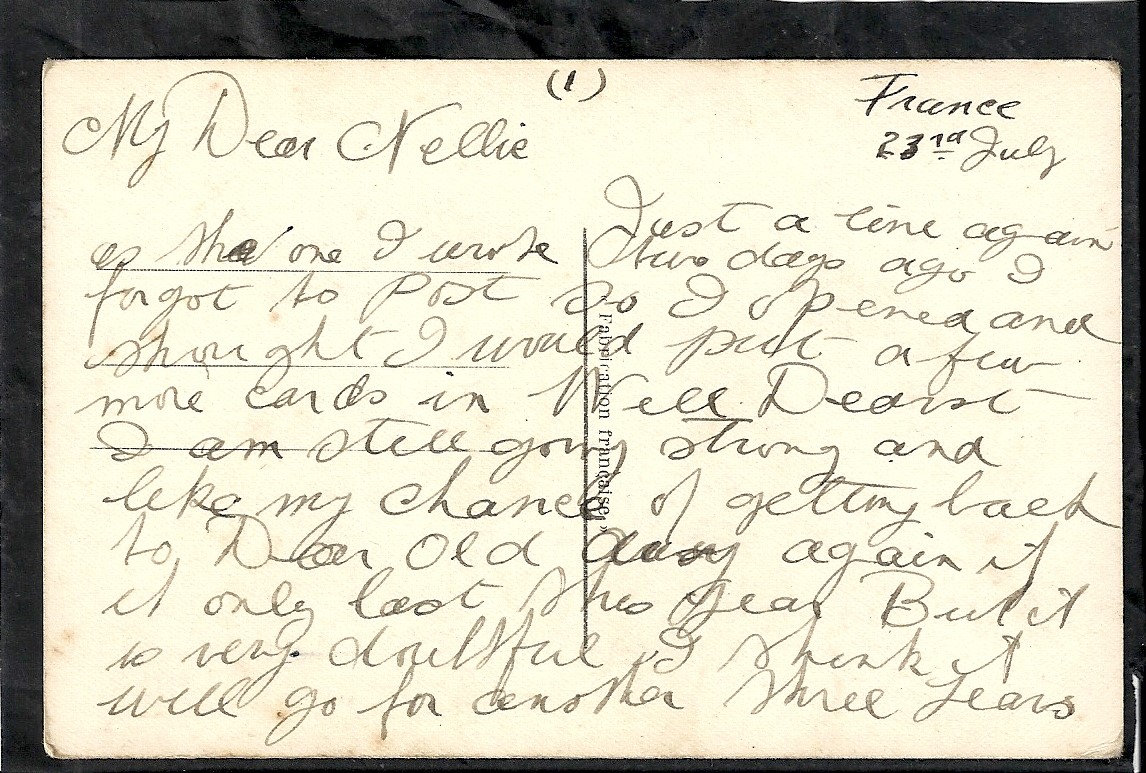 (1)
France
23rd July
My Dear Nellie
Just a line again
as the one I wrote two days ago I
forgot to post so I opened and
thought I would put a few
more cards in Well Dearest
I am still going strong and
like my chance of getting back
to Dear old again if
it only last this year But it
is very doubtful I think it
will go for another three years
" Fabrication française "